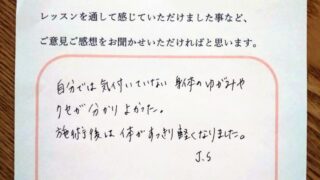 レッスンを通して感じていただけました事など、
ご意見ご感想をお聞かせいただければと思います。
自分では気付いていない身体のゆがみや
クセが分かりよかった。
施術後は体がすっきり軽くなりました。
J.S